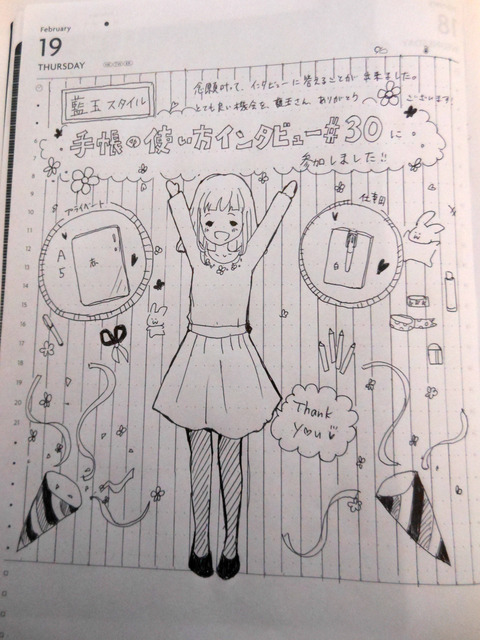 February
19
THURSDAY
藍玉スタイル
念願叶って、インタビューに答えることが出来ました。
とても良い機会を、藍玉さん、ありがとうございます!
手帳の使い方インタビュー#30に
参加しました!!
プライベート
A5
赤
仕事用
白
Thank
You